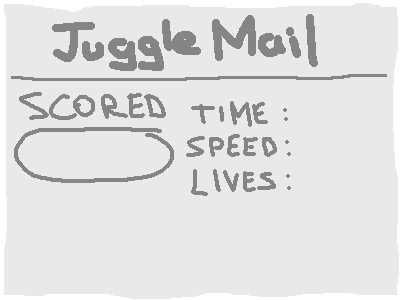 Juggle Mail
SCORED
TIME :
SPEED:
LIVES: